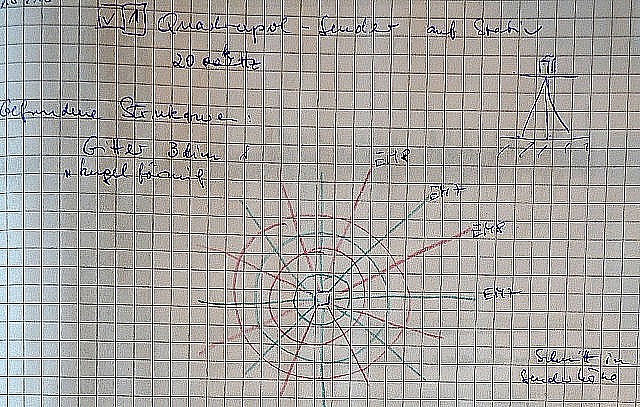 V 1 Quadrupol-Sender auf Stativ
20 Hz
Gefundene Strukturen:
Gitter 3dim &
kugelförmig
EM8
EM7
EM8
EM7
Schnitt in
Senderhöhe